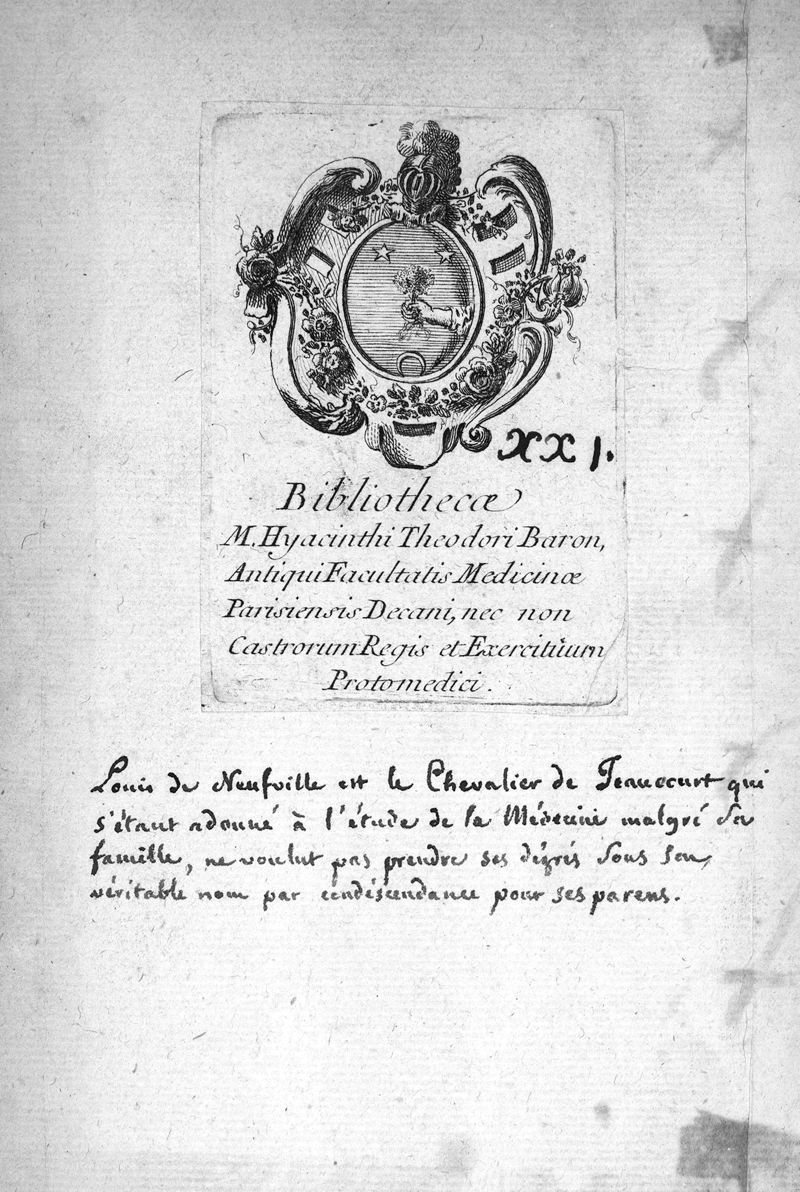 XXj.
Bibliothecæ
M. Hyacinthi Theodori Baron,
Antiqui Facultatis Medicinæ
Parisiensis Decani, nec non
Castrorum Regis et Exercitûum
Protomedici.
Louis de Neufville est le Chevalier de Jeaucourt qui
s'étant adonné à l'étude de la Médecine malgré sa
famille, ne voulut pas prendre ses dégrés sous son
véritable nom par condéscendance pour ses parens.